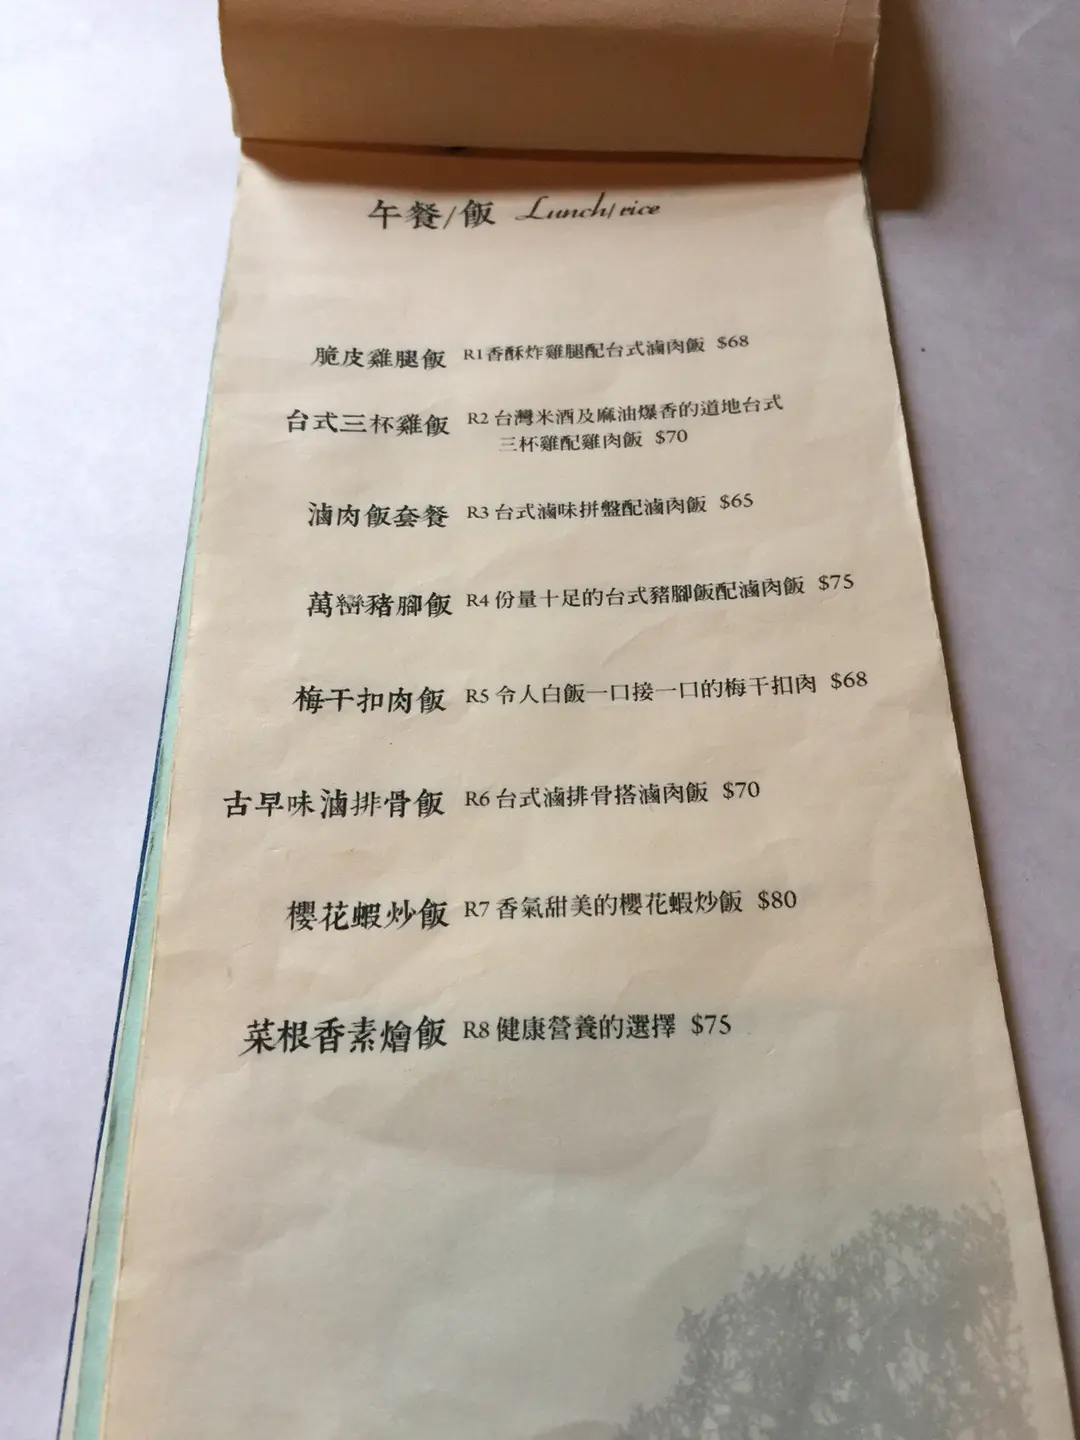 午餐/飯 Lunch/rice
脆皮雞腿飯 R1 香酥炸雞腿配台式滷肉飯 $68
台式三杯雞飯 R2 台灣米酒及麻油爆香的道地台式
三杯雞配雞肉飯 $70
滷肉飯套餐 R3 台式滷味拼盤配滷肉飯 $65
萬巒豬腳飯 R4 份量十足的台式豬腳飯配滷肉飯 $75
梅干扣肉飯 R5 令人白飯一口接一口的梅干扣肉 $68
古早味滷排骨飯 R6 台式滷排骨搭滷肉飯 $70
櫻花蝦炒飯 R7 香氣甜美的櫻花蝦炒飯 $80
菜根香素燴飯 R8 健康營養的選擇 $75